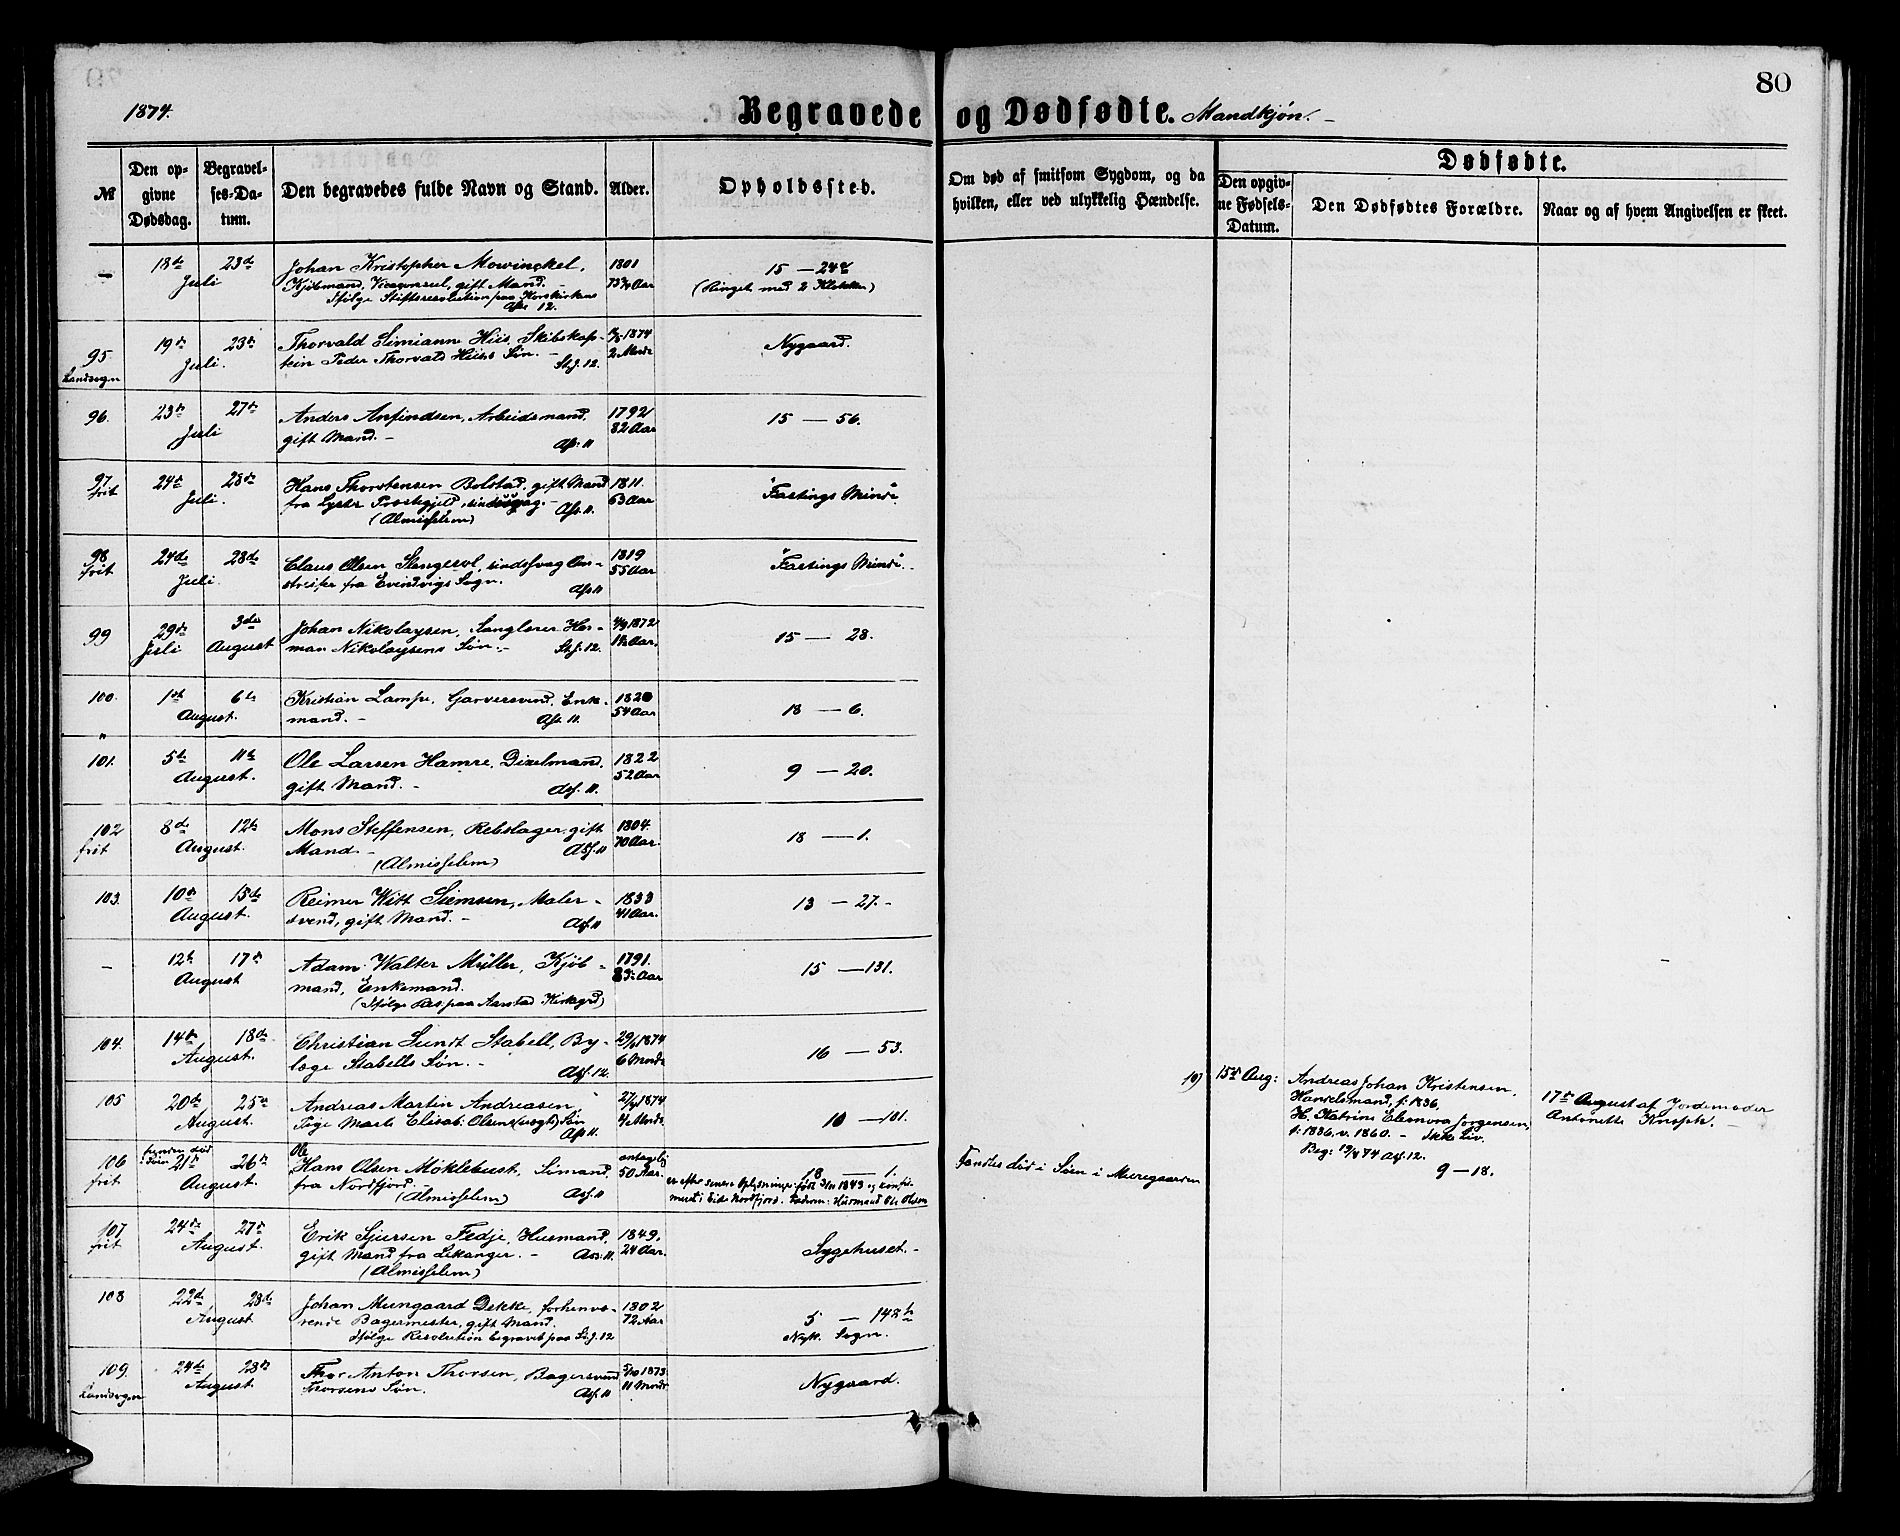 80
1874.
Begravede og Dødfødte. Mandkjøn.
№
Den opgivne Dødsdag.
Begravelses-Datum.
Den begravedes fulde Navn og Stand.
Alder.
Opholdssted.
Om død af smitsom Sygdom, og da hvilken, eller ved ulykkelig Hændelse.
Dødfødte.
Den opgivne Fødsels-Datum.
Den Dødfødtes Forældre.
Naar og af hvem Angivelsen er skeet.
– 18de Juli 23de Johan Kristopher Mowinckel, 1801
Kjøbmand, gift Mand. – 15 – 24
Ifølge Stiftsresolution paa Korskirkens (Ringet med 2 Klokker)
Afs. 12.
95 Landsogn 19de Juli 23de Thorvald Simiann Hiis, Skibskap- 1874 Nygaard.
tein Peder Thorvald Hiis's Søn. – 2 Mndr
96. 23de Juli 27de Anders Anfindsen, Arbeidsmand, 1792 15 – 56.
gift Mand. – Afs. 11 82 Aar
97 frit 24de Juli 28de Hans Thorstensen Bolstad, gift Mand 1811. "Fastings Minde"
fra Lyster Præstegjeld, sindssvag. – Afs. 11. 63 Aar
(Almisselem)
98 frit 24de Juli 28de Claus Olsen Slangevol, sindssvag Om- 1819 "Fastings Minde".
streifer fra Evindvigs Sogn. Afs. 11 55 Aar
99 29de Juli 3die August Johan Nikolaysen, Sanglærer Her- 1872 15 – 28.
man Nikolaysens Søn. – 12. 1½ Aar.
100. 1ste August 6te Kristian Lampe, Garversvend, Enke- 1820 18 – 6.
mand. – Afs. 11. 54 Aar
101. 5te August 11te Ole Larsen Hamre, Dixelmand, 1822 9 – 20.
gift Mand. – Asf. 11. 52 Aar
102 frit 8de August 12te Mons Steffensen, Rebslager, gift 1804. 18 – 1.
Mand. – Asf. 11 70 Aar.
(Almisselem)
103. 10de August 15de Reimer Witt Siemsen, Maler- 1833 13 – 27. –
svend, gift Mand. – Asf. 11 41 Aar.
– 12te August 17de Adam Walter Müller, Kjøb- 1791. 15 – 131.
mand, Enkemand. 83 Aar
(Ifølge Res paa Aarstad Kirkegrd)
104. 14de August 18de Christian Lundt Stabell, By- 1874 16 – 53.
læge Stabells Søn. – Asf. 12. 6 Mndr
105 20de August 25de Andreas Martin Andreasen, 1874 10 – 101.
Pige Marte Elisab: Olsens (uægt) Søn 4 Mndr.
Afs 11.
106 frit funden død i Søen 21de August 26de Ole
Hans Olsen Møklebust, Sømand, antagelig 18 – 1. Fandtes død i Søen i Muregaarden
fra Nordfjord. – Asf. 11 50 Aar. er efter senere Oplysninger født 1843 og konfir-
(Almisselem) meret i Eids Nordfjord. Faderen: Husmand Ole Olsen
107 frit 24de August 27de Erik Sjursen Fedje, Husmand, 1849. Sygehuset. –
gift Mand fra Lekanger. – Ass. 11. 24 Aar.
(Almisselem)
108 22de August 28de Johan Mungaard Dekke, forhenvæ- 1802 5 – 148
rende Bagermester, gift Mand. 72 Aar Nyk. Sogn.
Ifølge Resolution begravet paa 12
109. Landsogn 24de August 28de Thor Anton Thorsen, Bagersvend 5/10 1873 Nygaard.
Thorsens Søn. Asf. 11 11 Mndr.
10) 15de Aug: Andreas Johan Kristensen, 17de August af Jordemoder
Handelsmand, f. 1836, Antonette Knoph. –
H. Katrine Eleonora Jørgensen,
f. 1836, v. 1860. – Ikke Liv.
Beg: 19/8 74 Asf. 12.
9 – 18.